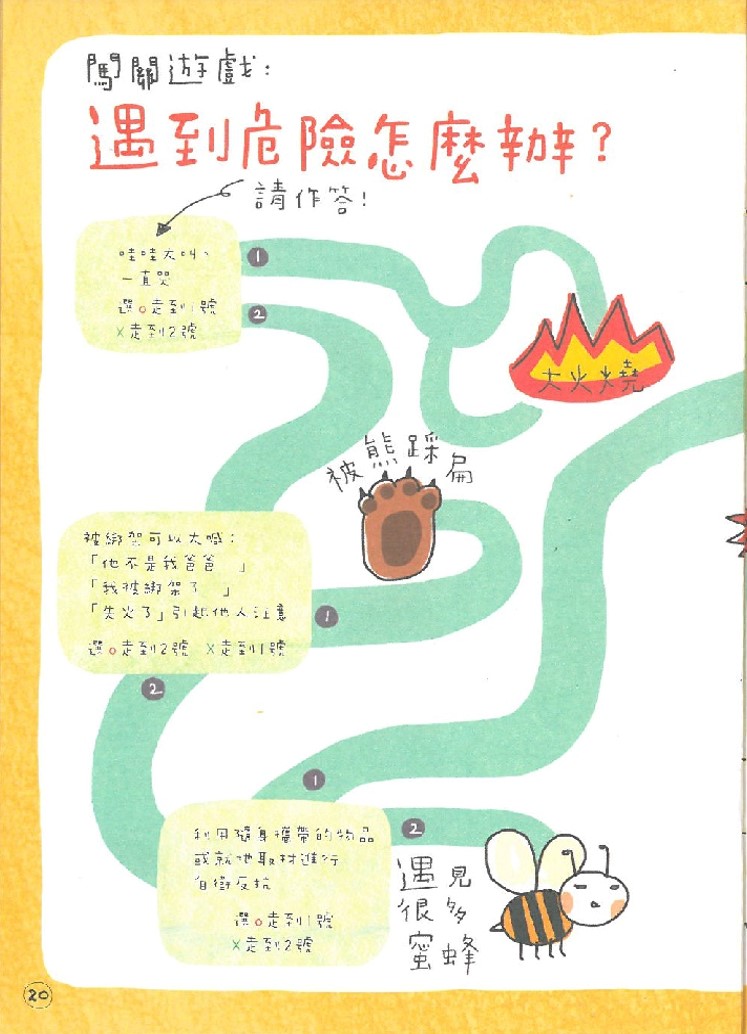 闖關遊戲:
遇到危險怎麼辦?
請作答!
哇哇大叫、
一直哭
選o走到1號
X走到2號
1
2
大火燒
被熊踩扁
被綁架可以大喊:
「他不是我爸爸 」
「我被綁架了 」
「失火了」引起他人注意
選o走到2號 X走到1號
1
2
1
利用隨身攜帶的物品
或就地取材進行
自衛反抗
選o走到1號
X走到2號
2
遇見
很多
蜜蜂
20